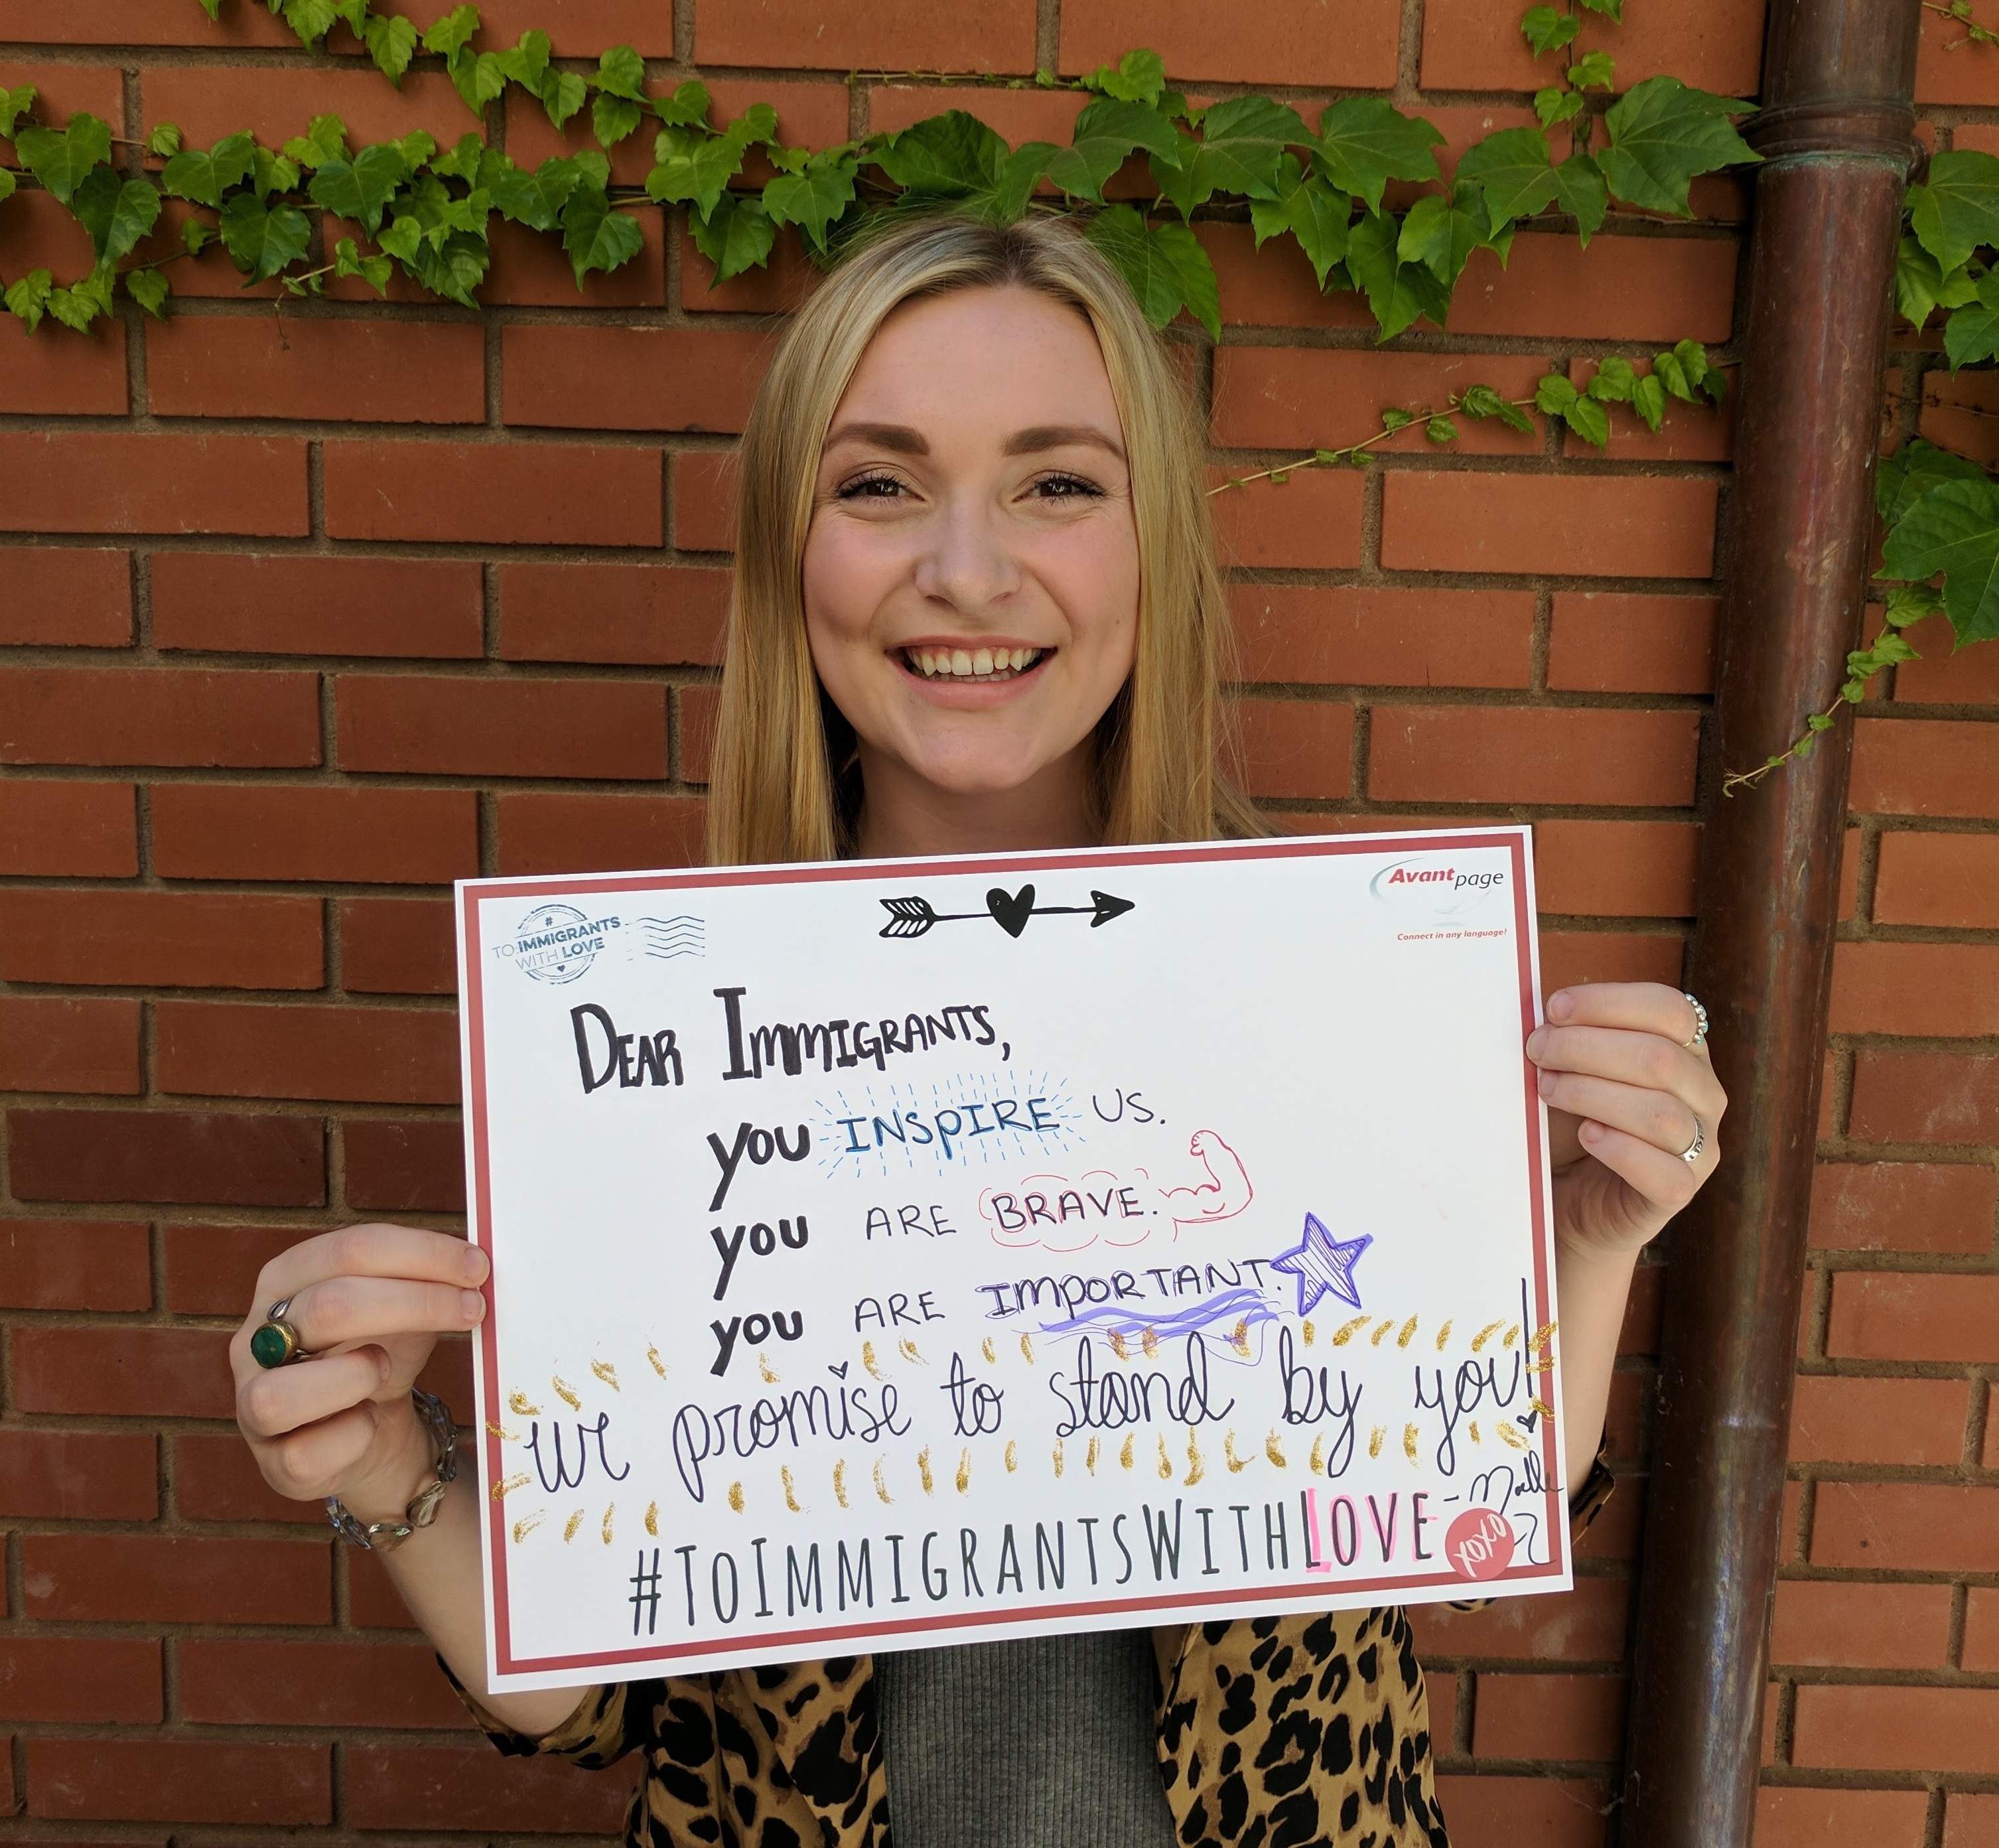 #
TO IMMIGRANTS
WITH LOVE
Avantpage
Connect in any language!
DEAR IMMIGRANTS,
you INSPIRE US.
you ARE BRAVE.
you ARE IMPORTANT.
we promise to stand by you!
- Noelle
#TOIMMIGRANTSWITHLOVE
xoxo